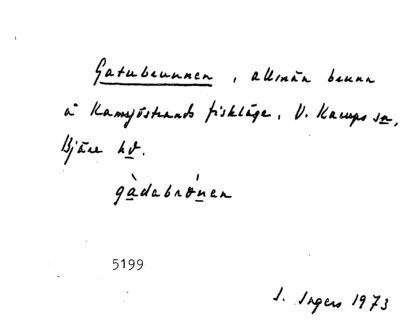 Gatubrunnen, allmän brunn
å Ramsjöstrands fiskläge. V. Karups sn,
Bjäre hd.
gàdabrónen
5199
I. Ingers 1973